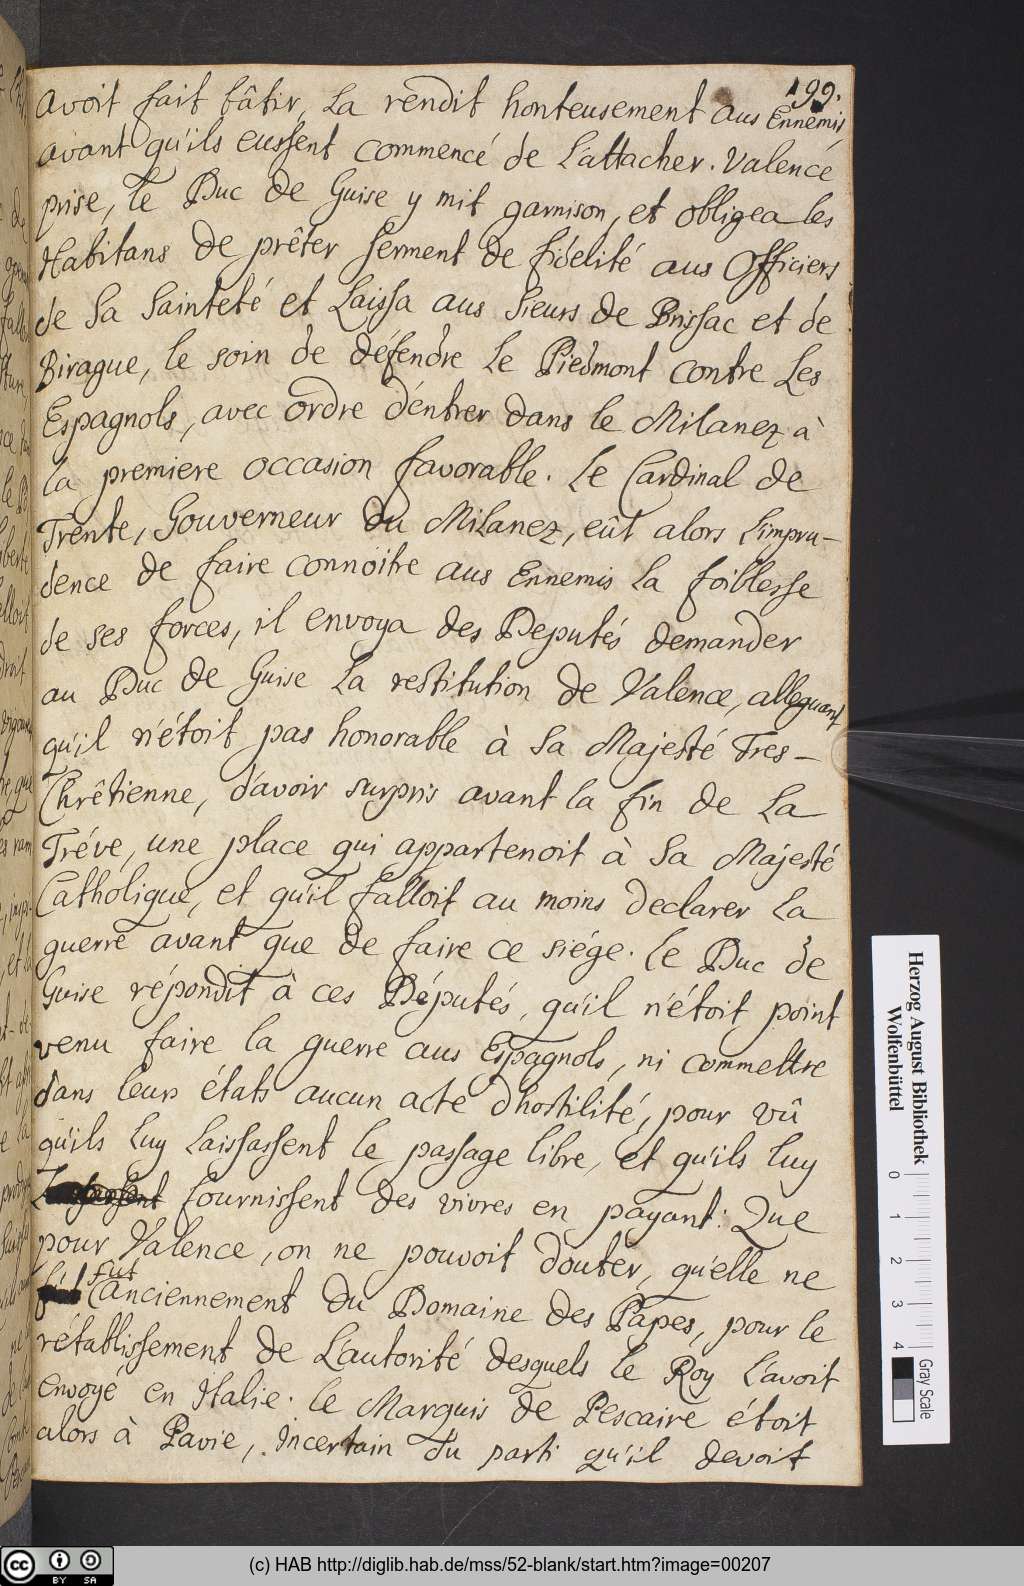 199.
avoit fait bâtir, la rendit honteusement aus Ennemis
avant qu'ils eussent commencé de l'attacher. Valencé
prise, le Duc de Guise y mit garnison, et obligea les
Habitans de prêter serment de fidelité aus Officiers
de Sa Sainteté et laissa aus Sieurs de Brissac et de
Birague, le soin de défendre le Piedmont contre les
Espagnols, avec ordre d'entrer dans le Milanez à
la premiere occasion favorable. Le Cardinal de
Trente, Gouverneur du Milanez, eût alors l'impru-
dence de faire connoître aus Ennemis la foiblesse
de ses forces, il envoya des Deputés demander
au Duc de Guise la restitution de Valence, alleguant
qu'il n'étoit pas honorable à Sa Majesté Tres-
Chrêtienne, d'avoir surpris avant la fin de la
Tréve, une place qui appartenoit à Sa Majesté
Catholique, et qu'il falloit au moins declarer la
guerre avant que de faire ce siége. Le Duc de
Guise répondit à ces Députés, qu'il n'étoit point
venu faire la guerre aus Espagnols, ni commettre
dans leurs etats aucun acte d'hostilité, pour vû
qu'ils luy laissassent le passage libre, et qu'ils luy
fournissent des vivres en payant: Que
pour Valence, on ne pouvoit douter, qu'elle ne
fut anciennement du Domaine des Papes, pour le
rétablissement de l'autorité desquels le Roy l'avoit
envoyé en Italie. le Marquis de Pescaire étoit
alors à Pavie, incertain du parti qu'il devoit
Herzog August Bibliothek
Wolfenbüttel
0 1 2 3 4
Gray Scale
(c) HAB http://diglib.hab.de/mss/52-blank/start.htm?image=00207
cc BY SA